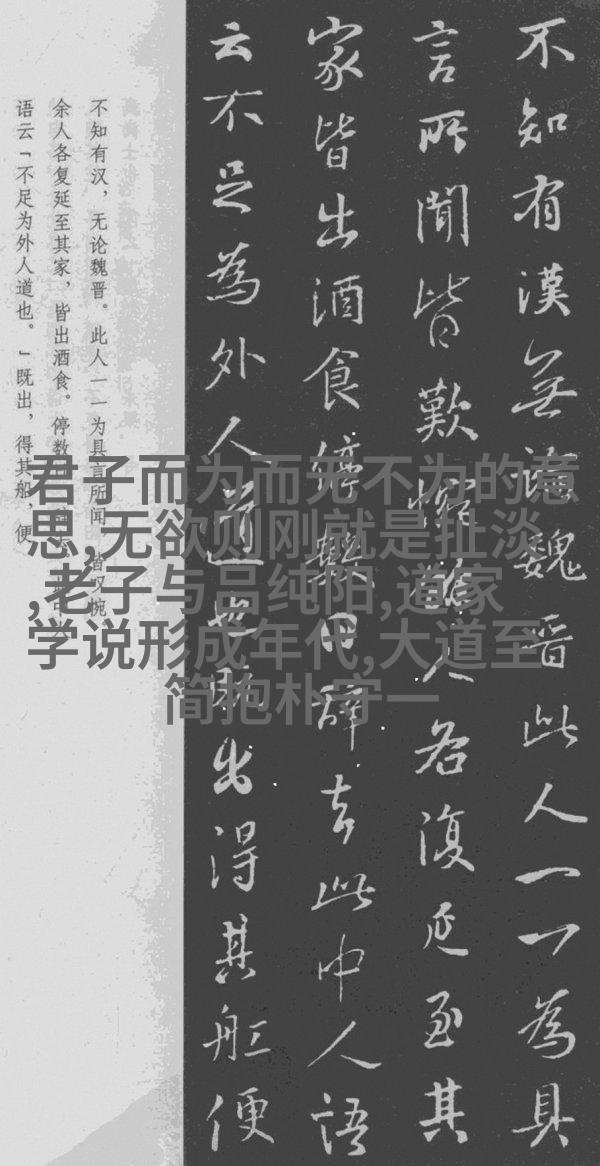 不知有漢無論魏晋此人一一為具
言所聞皆歎惋餘人各復延至其
家皆出酒食停數日辞去此中人語
云不足為外人道也既出得其舡便
不知有汉，无论魏晋。此人一一为具言所闻，皆叹惋
余人各复延至其家，皆出酒食。停数
语云「不足为外人道也。」既出，得其船，便
君子而为而无不为的意
思,无欲则刚就是扯淡
,老子与吕纯阳,道家
学说形成年代,大道至
简抱朴守一